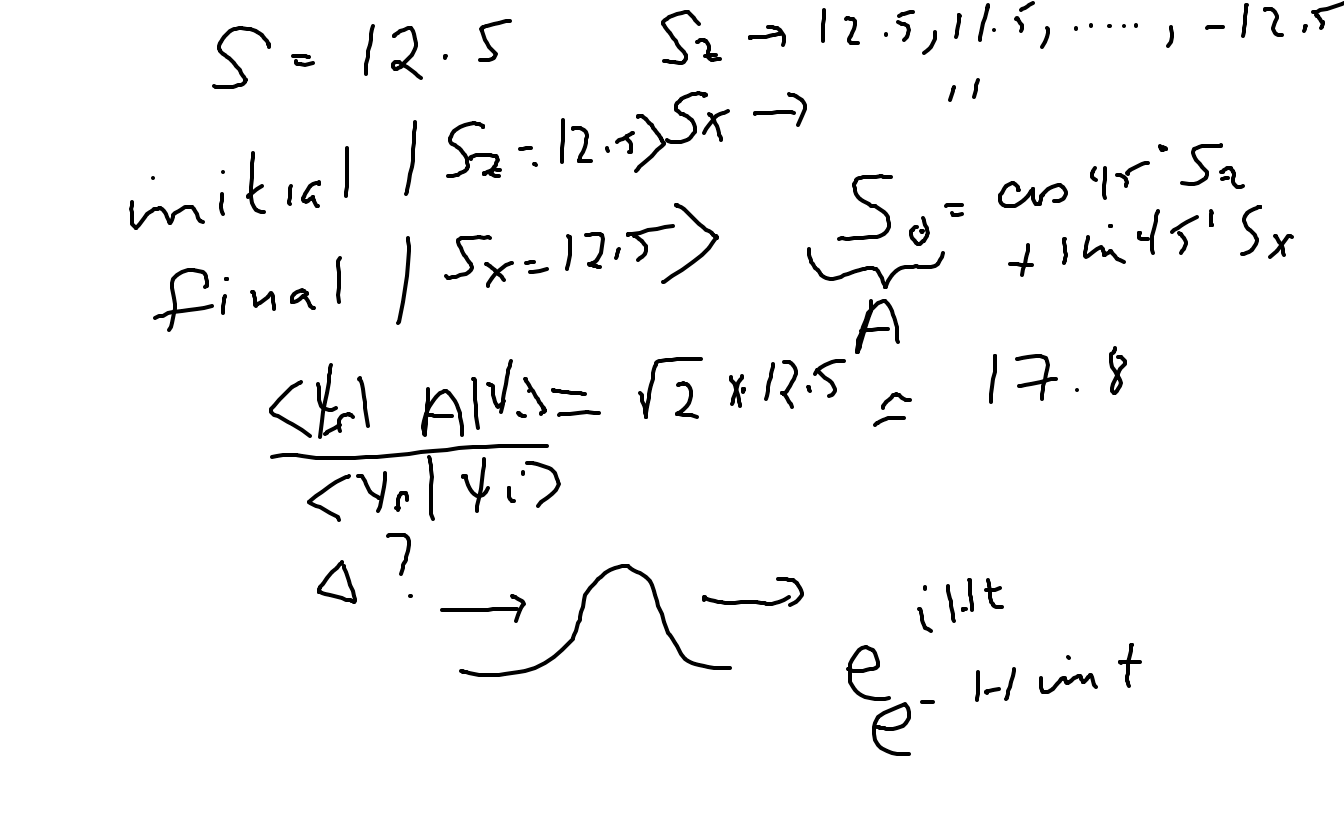 S = 12.5 Sz → 12.5, 11.5, ....., -12.5
initial | Sz = 12.5> Sx → "
final | Sx = 12.5> Sθ = cos 45° Sz
+ sin 45° Sx
A
<ψf| A |ψi> = √2 × 12.5 = 17.8
<ψf | ψi>
Δ ? → →
e^iHt
e^- H int